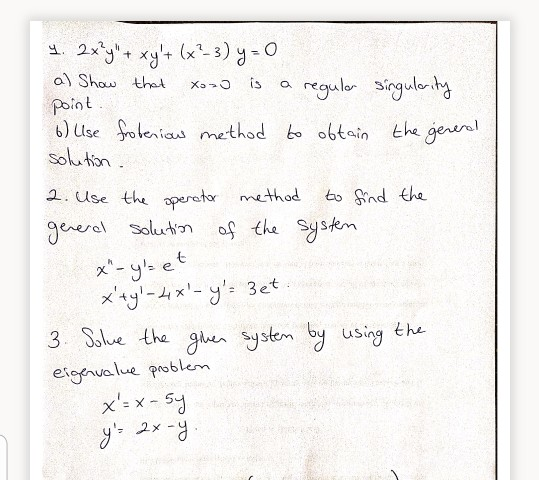 1. 2x²y" + xy' + (x²-3) y = 0
a) Show that x₀=0 is a regular singularity
point.
b) Use frobenious method to obtain the general
solution.
2. Use the operator method to find the
general solution of the system
x" - y' = e^t
x'+y'-4x'-y' = 3e^t.
3. Solve the given system by using the
eigenvalue problem
x' = x - 5y
y' = 2x - y.